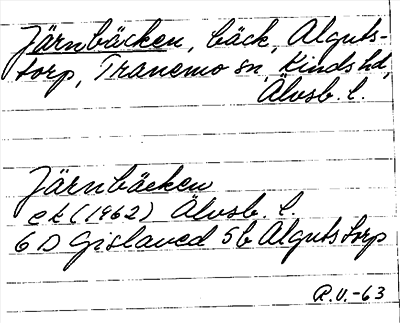 Järnbäcken, bäck, Alguts-
torp, Tranemo sn, Kinds hd,
Älvsb. l.
Järnbäcken
ek (1962) Älvsb. l.
6 D Gislaved 5b Algutstorp
R.V.-63